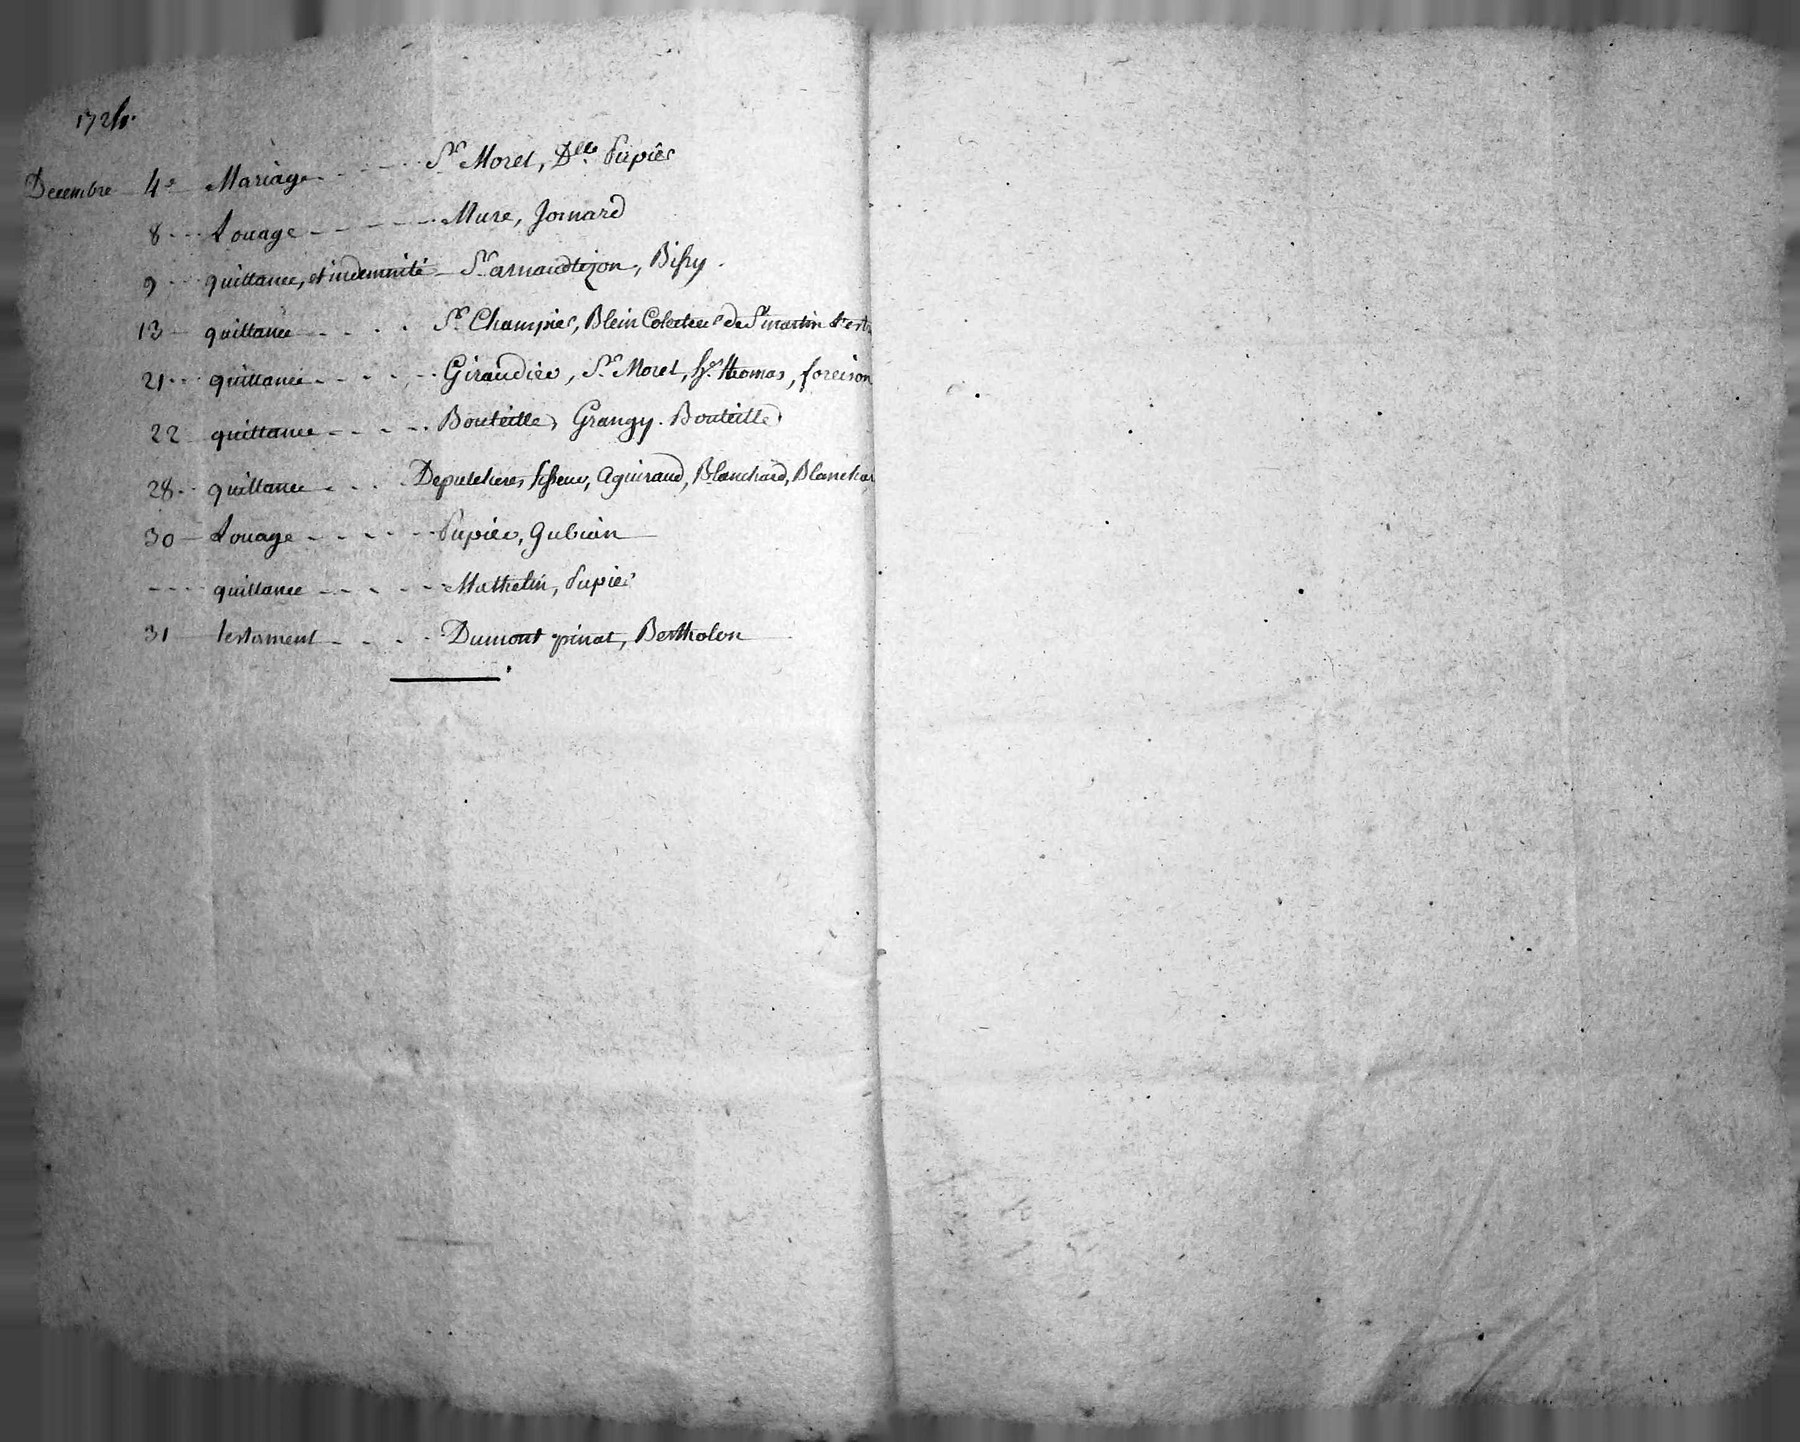 1724.
Decembre 4e Mariage - - - - Sr. Moret, Dlle. Pupier
8 - - - Louage - - - - - Mure, Joinard
9 - - quittance, et indemnité - Sr. arnaudtizon, Bissy.
13 - quittance - - - - Sr. Champier, Blein Colecteur de St martin
21 - - quittance - - - - - Giraudier, Sr. Moret, Thomas,
22 quittance - - - - Bouteille, Grangy. Bouteille
28 - - quittance - - - aguiraud, Blanchard, Blanchar
30 - Louage - - - - - Pupier, gubian
- - - quittance - - - - - Mathelin, Pupier
31 - testament - - - - Dumont pinat, Bertholon